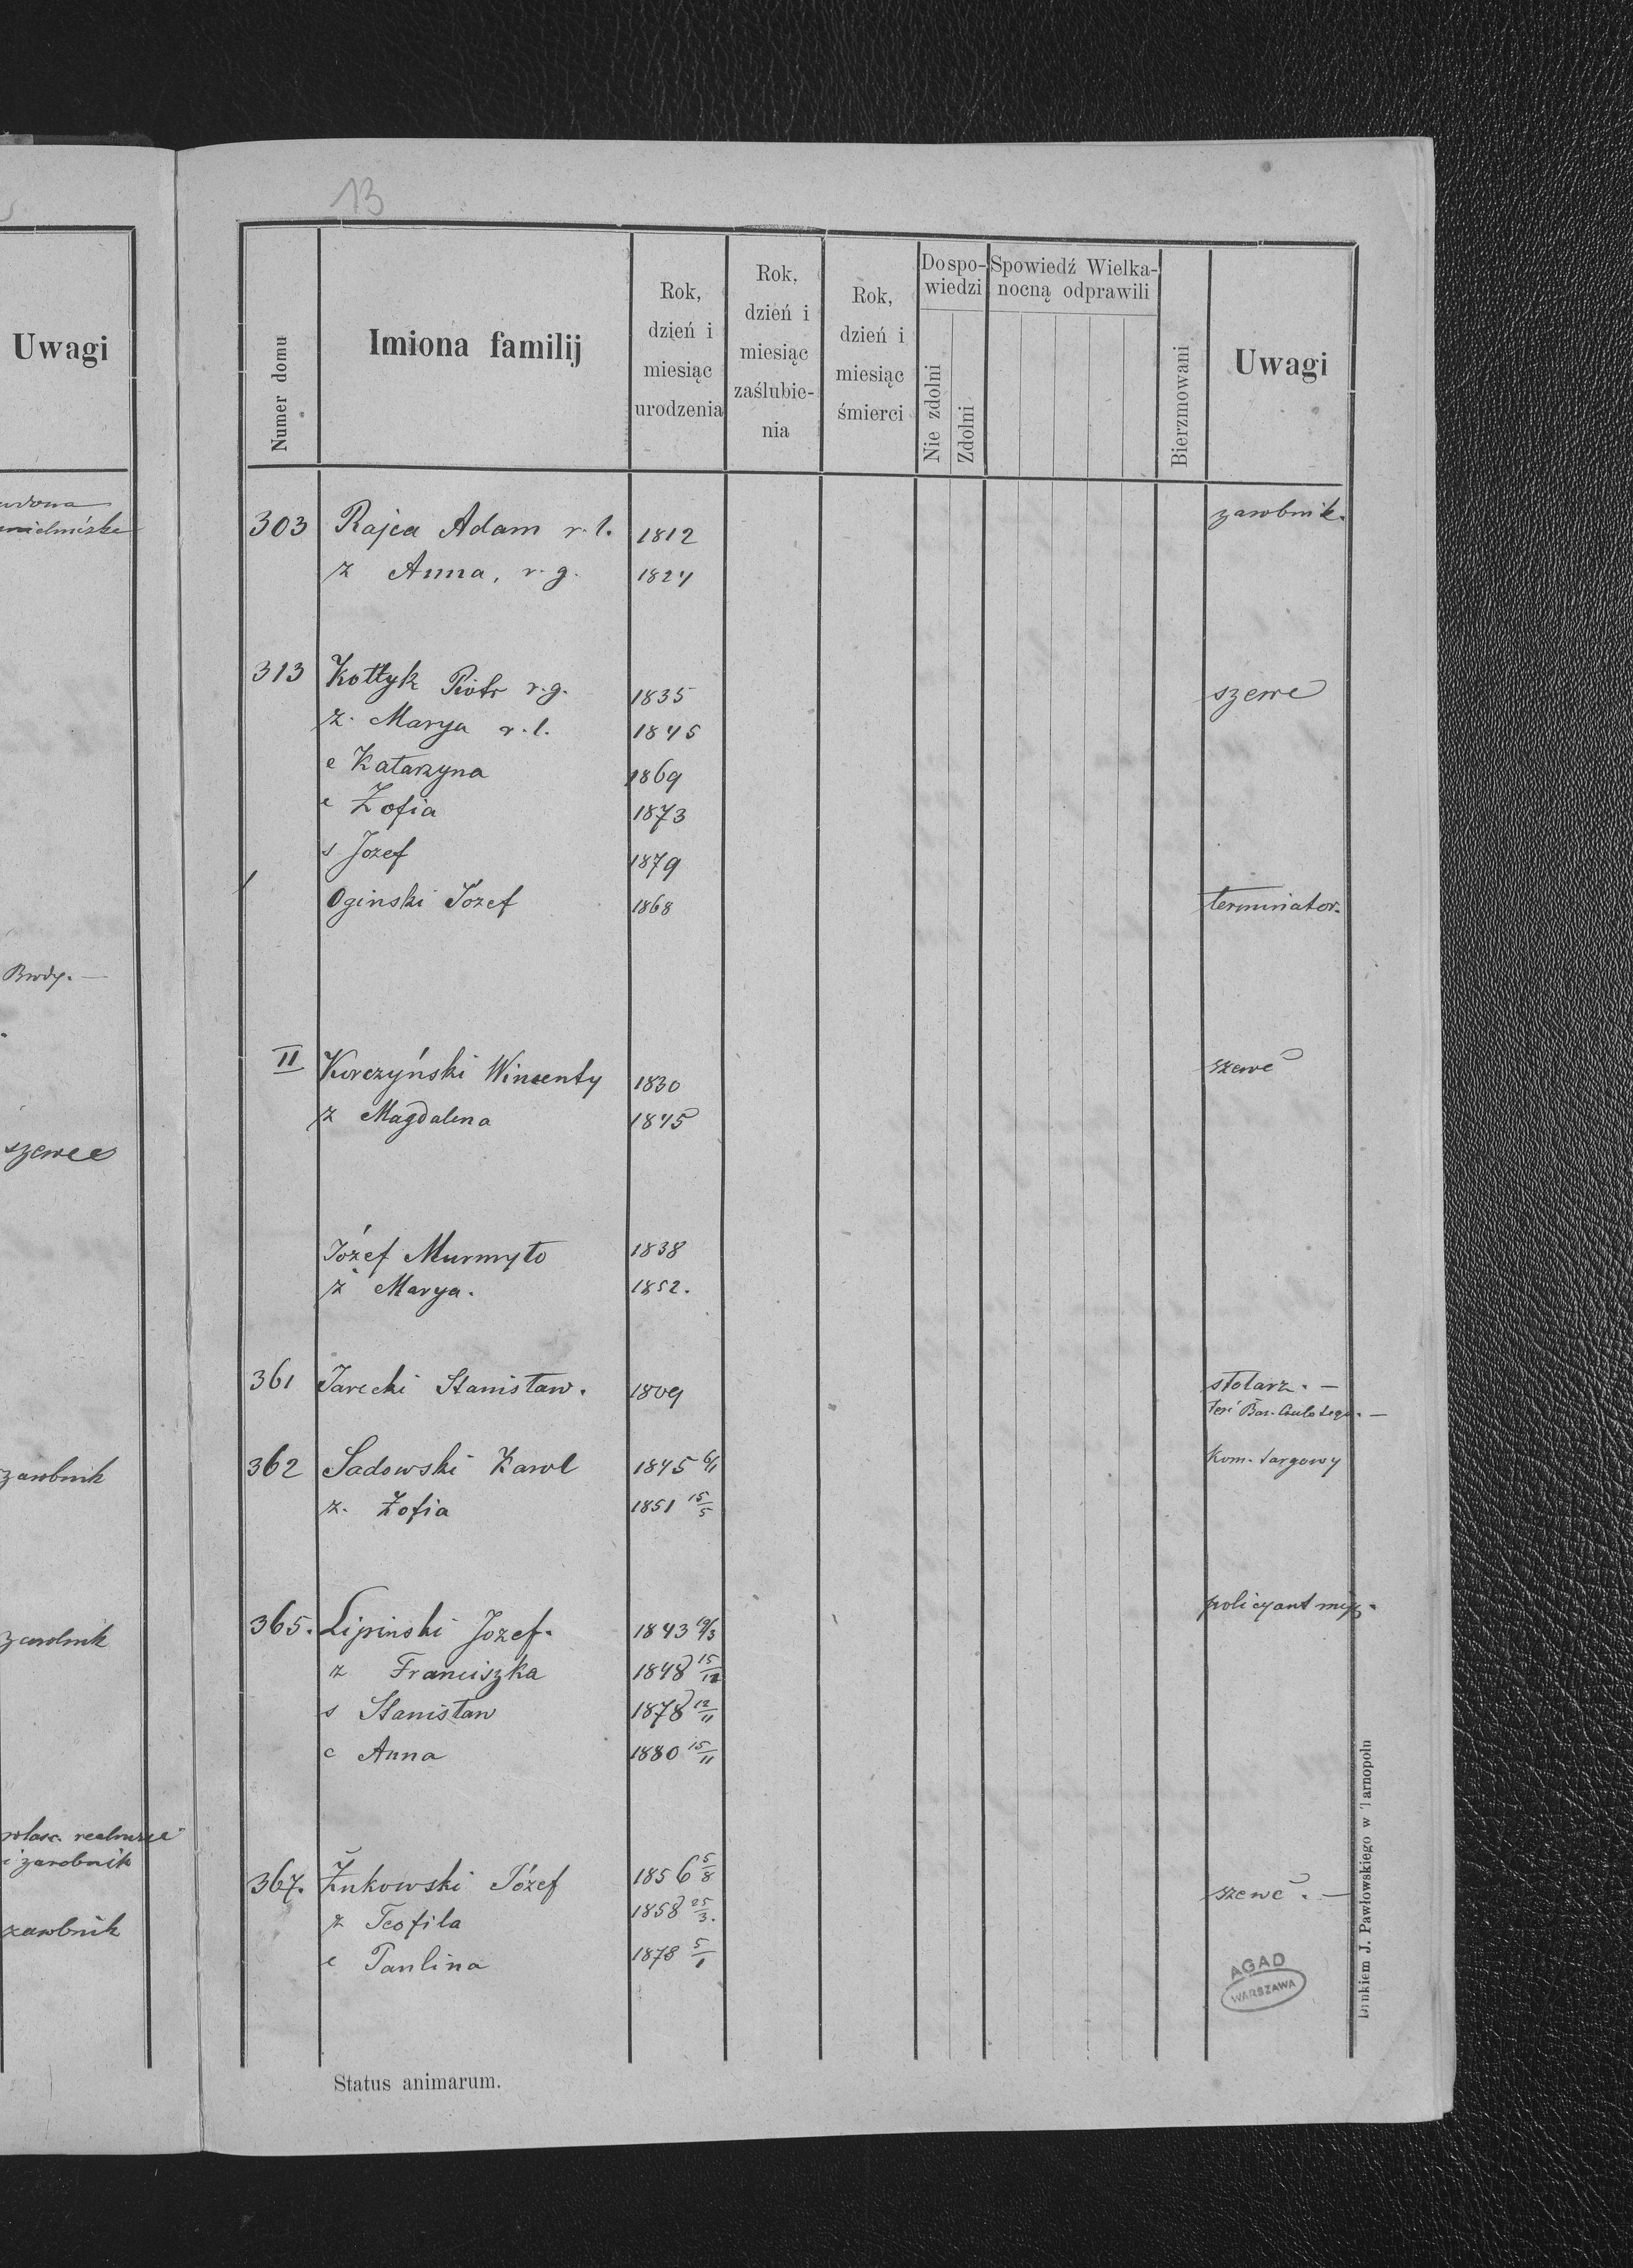 13
Uwagi
Numer domu
Imiona familij
Rok, dzień i miesiąc urodzenia
Rok, dzień i miesiąc zaślubie-nia
Rok, dzień i miesiąc śmierci
Do spo-wiedzi
Nie zdolni
Zdolni
Spowiedź Wielka-nocną odprawili
Bierzmowani
Uwagi
303 Rajca Adam r. l. 1812 zarobnik.
ż Anna, r. g. 1824
313 Kottyk Piotr r. g. 1835 szewc
ż. Marya r. l. 1845
c Katarzyna 1869
c Zofia 1873
s Jozef 1879
Oginski Jozef 1868 terminator.
II Korczyński Wincenty 1830 szewc
ż Magdalena 1845
Józef Murmyło 1838
ż Marya. 1852.
361 Jarecki Stanisław. 1809 stolarz. —
362 Sadowski Karol 1845 6/1 Kom. targowy
ż. Zofia 1851 15/5
365. Lipinski Jozef. 1843 19/3 policyant
ż Franciszka 1848 15/12
s Stanisław 1878 12/11
c Anna 1880 15/11
367. Żukowski Józef 1856 5/8 szewc. —
ż Teofila 1858 25/3.
c Paulina 1878 5/1
Brody. —
szewc
zarobnik
zarobnik
i zarobnik
zarobnik
AGAD
WARSZAWA
Drukiem J. Pawłowskiego w Tarnopolu
Status animarum.